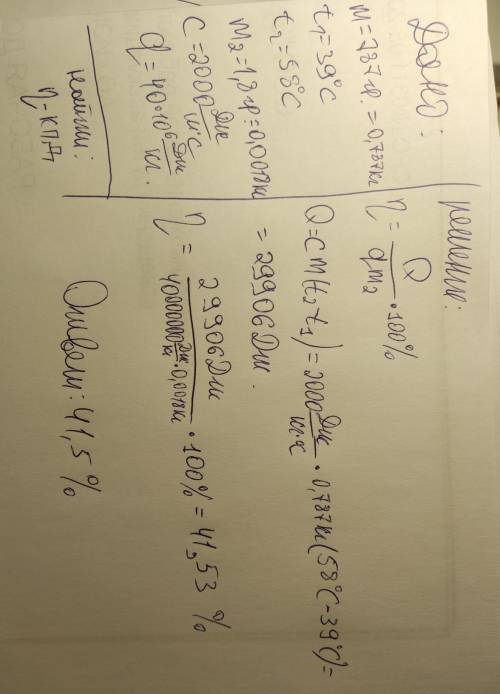 Дано:
m=787гр.=0,787кг
t₁=39°C
t₂=58°C
m₂=1,8гр=0,0018кг
c=2000 Дж/кг°C
q=40·10⁶ Дж/кг.
найти:
η-кпд
решение:
η = Q/qm₂ · 100%
Q=cm(t₂-t₁)=2000 Дж/кг·°C · 0,787кг(58°C-39°C)=
= 29906 Дж.
η = 29906 Дж/40000000 Дж/кг · 0,0018кг · 100% = 41,53 %
Ответ: 41,5 %